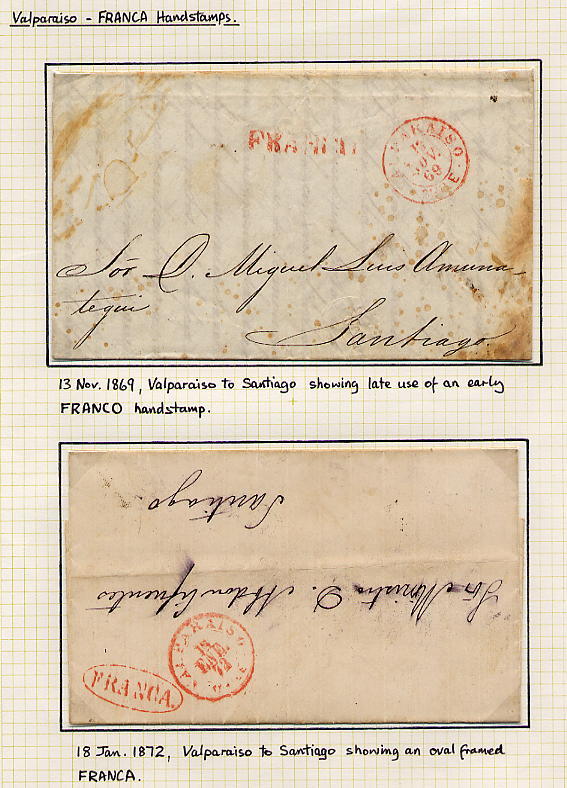 Valparaiso - FRANCA Handstamps.
VALPARAISO
13
NOV.
69
Sōr D. Miguel Luis Amuna-
tegui
Santiago.
13 Nov. 1869, Valparaiso to Santiago showing late use of an early
FRANCO handstamp.
Santiago.
Sōr Ministro D. Abdon Cifuentes
VALPARAISO
18
72
FRANCA.
18 Jan. 1872, Valparaiso to Santiago showing an oval framed
FRANCA.